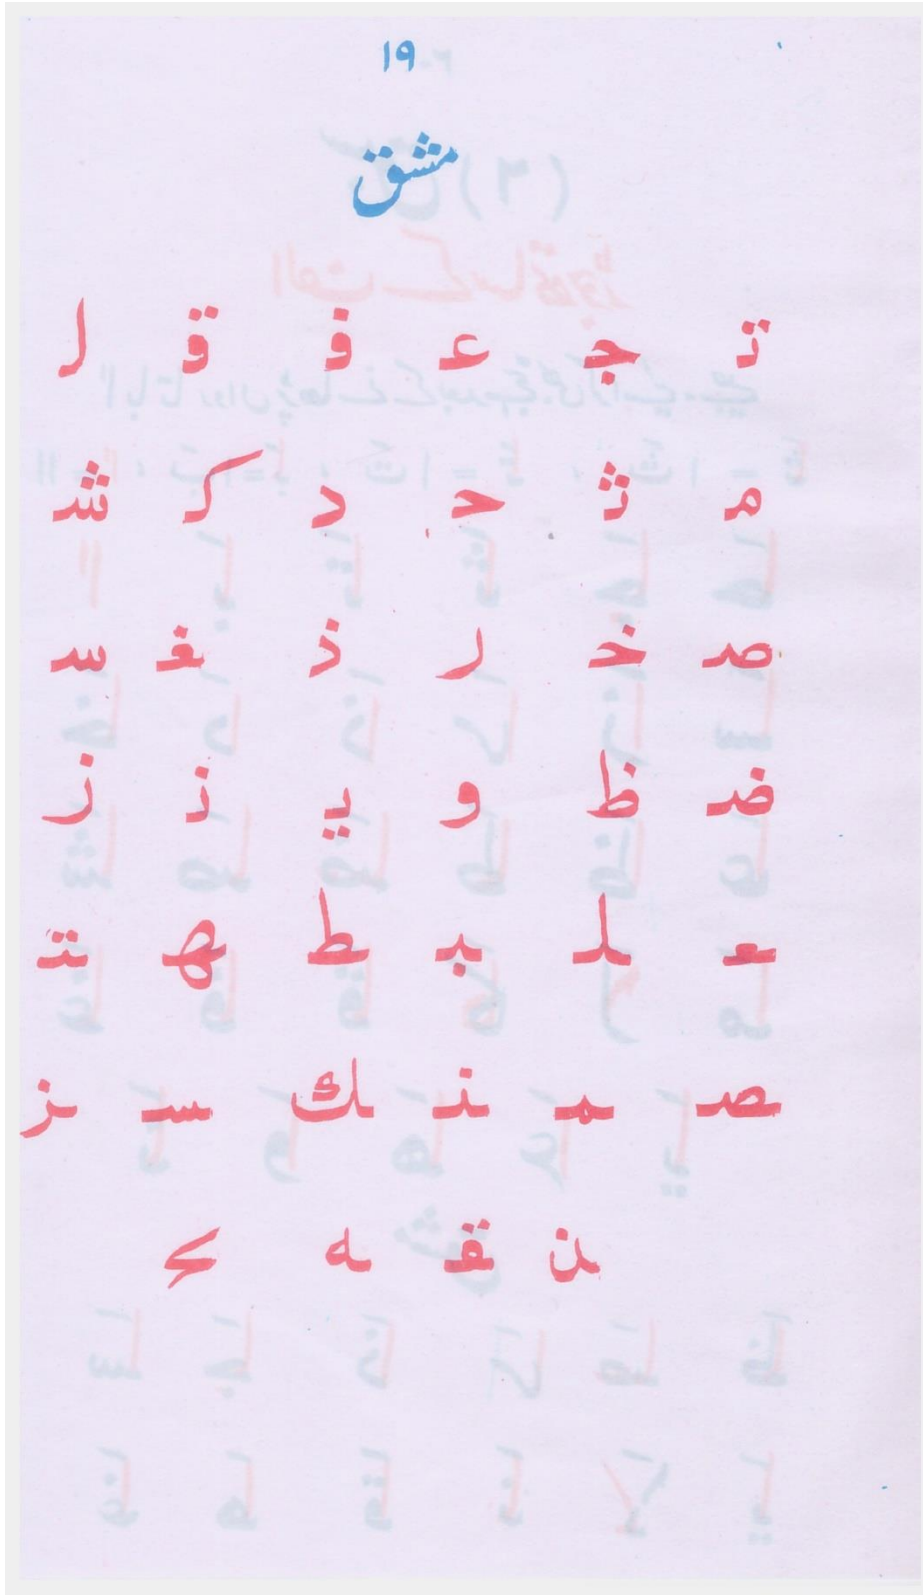 ١٩
مشق
تـ جـ عـ فـ قـ لـ
مـ ثـ حـ د کـ شـ
صـ خـ ر ذ ـغـ سـ
ضـ ظ و یـ نـ ز
ـعـ ـلـ ـبـ ـط ـھـ ـتـ
ـصـ ـمـ ـنـ ـك ـسـ ـز
ـن ـقـ ـہ ے